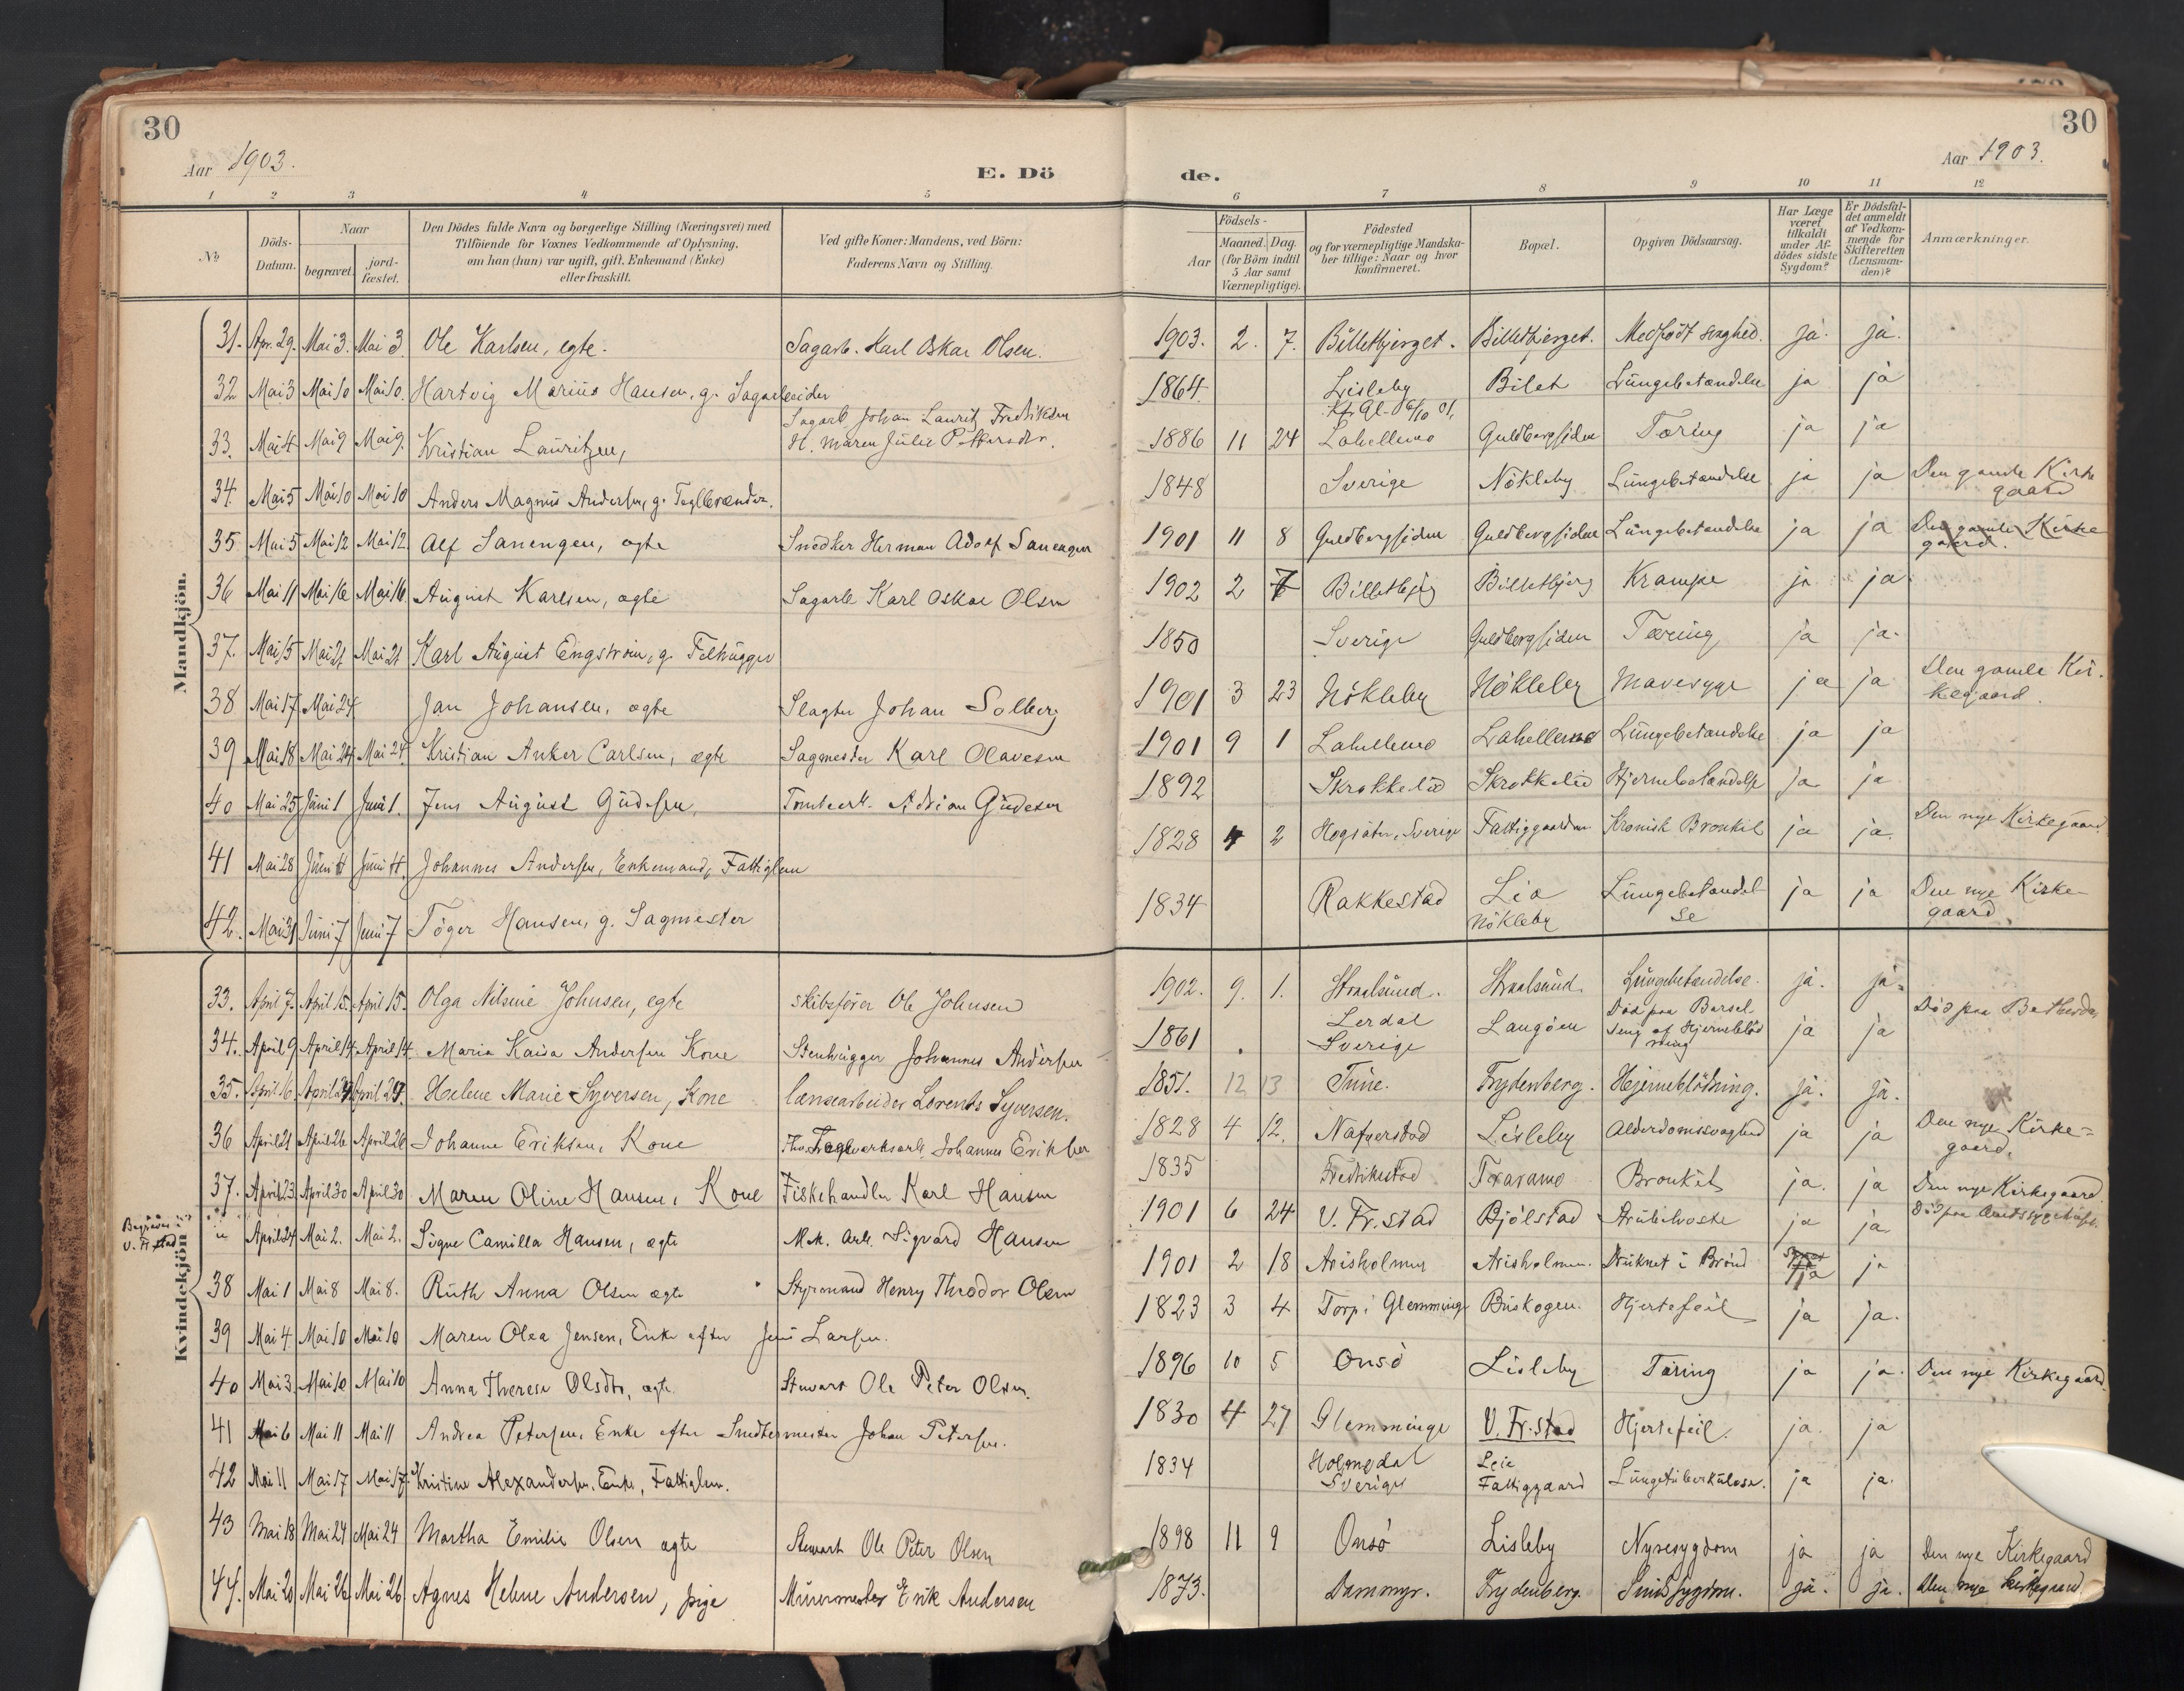 30
30
Aar 1903.
E. Dö
de.
Aar 1903.
1 2 3 4 5 6 7 8 9 10 11 12
№ Döds-Datum. Naar begravet. jord-fæstet. Den Dödes fulde Navn og borgerlige Stilling (Næringsvei) med Tilföiende for Voxnes Vedkommende af Oplysning, om han (hun) var ugift, gift, Enkemand (Enke) eller fraskilt. Ved gifte Koner: Mandens, ved Börn: Faderens Navn og Stilling. Födsels- Aar Maaned. Dag. (for Börn indtil 5 Aar samt Værnepligtige). Födested og for værnepligtige Mandskaber tillige: Naar og hvor konfirmeret. Bopæl. Opgiven Dödsaarsag. Har Læge været tilkaldt under Afdödes sidste Sygdom? Er Dödsfaldet anmeldt af Vedkommende for Skifteretten (Lensmanden)? Anmærkninger.
Mandkjön.
31. Apr. 29. Mai 3. Mai 3. Ole Karlsen, egte. Sagarb. Karl Oskar Olsen. 1903. 2. 7. Billetbjerget. Billetbjerget. Medfödt svaghed. ja. ja.
32 Mai 3 Mai 10 Mai 10. Hartvig Marius Hansen, g. Sagarbeider 1864. Lisleby Bilet Lungebetændelse ja ja
33. Mai 4 Mai 9 Mai 9. Kristian Lauritzen, Sagarb Johan Lauritz Fredriksen H. Maren Julie Pettersdtr. 1886 11 24 Kf. Gl. 6/10 01, Lahellemo Guldbergsiden Tæring ja ja
34. Mai 5 Mai 10 Mai 10 Anders Magnus Andersen, g. Teglbrænder. 1848 Sverige Nökleby Lungebetændelse ja ja Den gamle Kirkegaard
35 Mai 5 Mai 12 Mai 12 Alf Sanengen, ægte Snedker Herman Adolf Sanengen 1901 11 8 Guldbergsiden Guldbergsiden Lungebetændelse ja ja Den gamle Kirkegaard.
36 Mai 11 Mai 16 Mai 16 August Karlsen, ægte Sagarb Karl Oskar Olsen 1902 2 7 Billetbjerg Billetbjerg Krampe ja ja
37. Mai 15 Mai 21 Mai 21 Karl August Engström, g. Felhugger 1850 Sverige Guldbergsiden Tæring ja ja.
38 Mai 17 Mai 24 Jan Johansen, ægte Slagter Johan Solberg 1901 3 23 Nökleby Nökleby Mavesyge ja ja Den gamle Kirkegaard.
39 Mai 18 Mai 24 Mai 24 Kristian Anker Carlsen, ægte Sagmester Karl Olavesen 1901 9 1 Lahellemo Lahellemo Lungebetændelse ja ja
40 Mai 25 Juni 1 Juni 1. Jens August Gudesen, Tomtearb. Adrian Gudesen 1892 Skrokkelid Skrokkelid Hjernebetændelse ja ja
41 Mai 28 Juni 4 Juni 4. Johannes Andersen, Enkemand, Fattiglem 1828 4 2 Hogsäter, Sverige Fattiggaarden Kronisk Bronkit ja ja. Den nye Kirkegaard
42. Mai 31 Juni 7 Juni 7 Töger Hansen, g. Sagmester 1834 Rakkestad Lia Nökleby Lungebetændelse ja ja Den nye Kirkegaard.
Kvindekjön
33. April 7. April 15. April 15. Olga Nilsine Johnsen, egte Skibsförer Ole Johnsen 1902. 9. 1. Stralsund. Stralsund. Lungebetændelse. ja. ja.
34. April 9 April 14 April 14 Maria Kaisa Andersen Kone Stenhugger Johannes Andersen 1861 Lerdal Sverige Langöen Död paa Barsel seng af Hjerneblödning ja ja Död paa Bethesda
35. April 16. April 24 April 24. Helene Marie Syversen, Kone lænsearbeider Lorents Syversen. 1851. 12 13 Tune. Frydenberg. Hjerneblödning. ja. ja.
36 April 21 April 26 April 26 Johanne Eriksen, Kone Teglverksarb. Johannes Eriksen 1828 4 12. Nafverstad Lisleby Alderdomssvaghed ja ja Den nye Kirkegaard.
37. April 23 April 30 April 30 Maren Oline Hansen, Kone Fiskehandler Karl Hansen 1835 Fredrikstad Traramo Bronkit ja. ja Den nye Kirkegaard.
Begravet i V. Fr.stad " April 24 Mai 2. Mai 2. Signe Camilla Hansen, ægte Mek. Arb. Sigvard Hansen 1901 6 24 V. Fr.stad Bjölstad Strubehoste ja ja Död paa Amtssygehuset.
38 Mai 1 Mai 8 Mai 8. Ruth Anna Olsen ægte Styrmand Henry Theodor Olsen 1901 2 18 Arisholmen Arisholmen. Druknet i Brönd ja ja
39 Mai 4. Mai 10 Mai 10 Maren Olea Jensen, Enke efter Jens Larsen. 1823 3 4 Torp i Glemminge Buskogen. Hjertefeil ja ja.
40 Mai 3 Mai 10 Mai 10 Anna Therese Olsdtr, ægte. Stewart Ole Peter Olsen. 1896 10 5 Onsö Lisleby Tæring ja ja. Den nye Kirkegaard.
41 Mai 6 Mai 11 Mai 11 Andrea Petersen, Enke efter Snedkermester Johan Petersen. 1830 4 27 Glemminge V. Fr.stad Hjertefeil. ja. ja
42 Mai 11 Mai 17 Mai 17. Kristine Alexandersen, Enke, Fattiglem. 1834 Holmedal Sverige Leie Fattiggaard Lungetuberkulose. ja ja.
43 Mai 18 Mai 24 Mai 24 Martha Emilie Olsen ægte Stewart Ole Peter Olsen 1898 11 9 Onsö Lisleby Nyresygdom ja ja Den nye Kirkegaard
44. Mai 20 Mai 26 Mai 26 Agnes Helene Andersen, pige Murermester Erik Andersen 1873. Dammyr. Frydenberg. Sindssygdom. ja. ja. Den nye kirkegaard